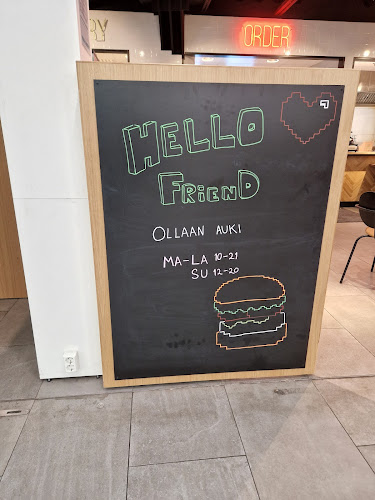 RY
ORDER
HELLO
FRiEND
OLLAAN AUKI
MA-LA 10-21
SU 12-20